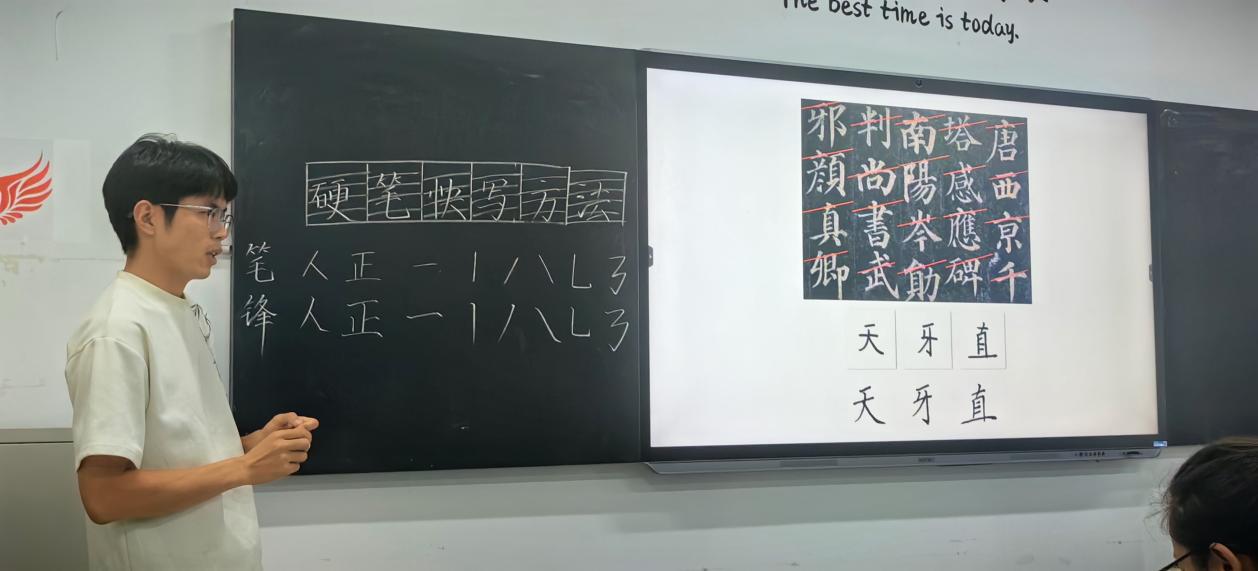 The best time is today.
硬笔快写方法
笔 人 正 一 丨 八 乚 ㄋ
锋 人 正 一 丨 八 乚 ㄋ
唐西京千
塔感應碑
南陽岑勛
判尚書武
邪顏真卿
天 牙 直
天 牙 直